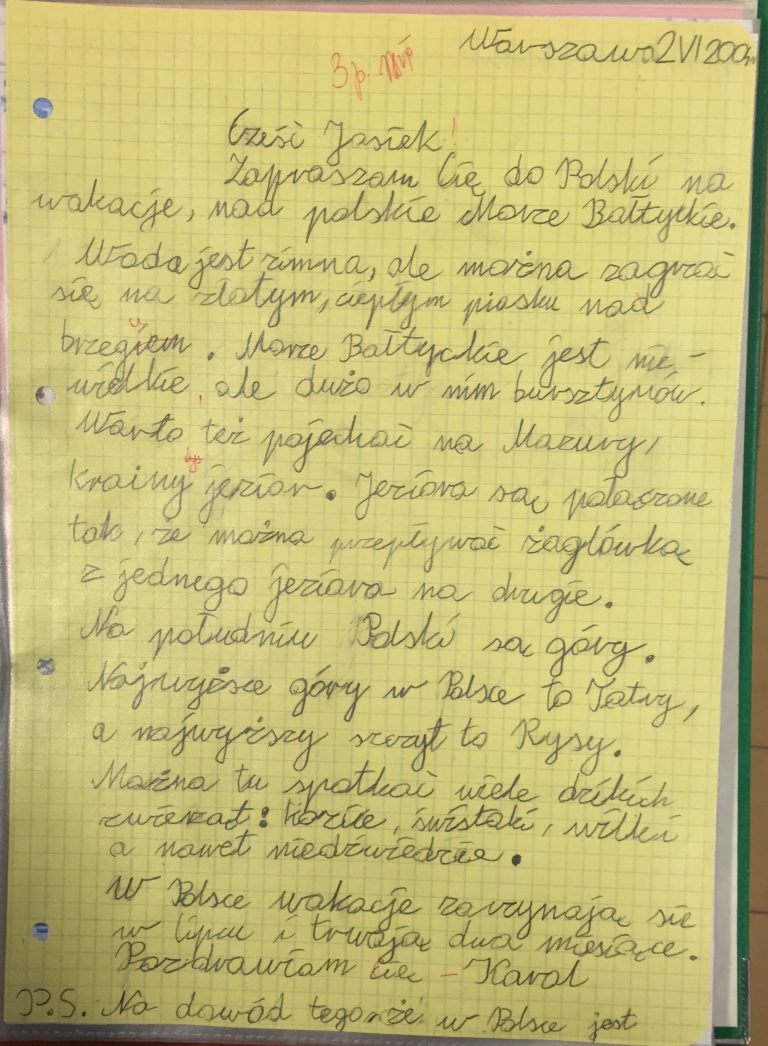 Warszawa 2 VI 200
3p.
Cześć Jasiek!
Zapraszam Cię do Polski na
wakacje, nad polskie Morze Bałtyckie.
Woda jest zimna, ale można zagrzać
się na złotym, ciepłym piasku nad
brzegiem. Morze Bałtyckie jest nie-
wielkie, ale dużo w nim bursztynów.
Warto też pojechać na Mazury,
krainy jezior. Jeziora są połączone
tak, że można przepływać żaglówką
z jednego jeziora na drugie.
Na południu Polski są góry.
Najwyższe góry w Polsce to Tatry,
a najwyższy szczyt to Rysy.
Można tu spotkać wiele dzikich
zwierząt: kozice, świstaki, wilki
a nawet niedźwiedzie.
W Polsce wakacje zaczynają się
w lipcu i trwają dwa miesiące.
Pozdrawiam Cię - Karol
P.S. Na dowód tego, że w Polsce jest